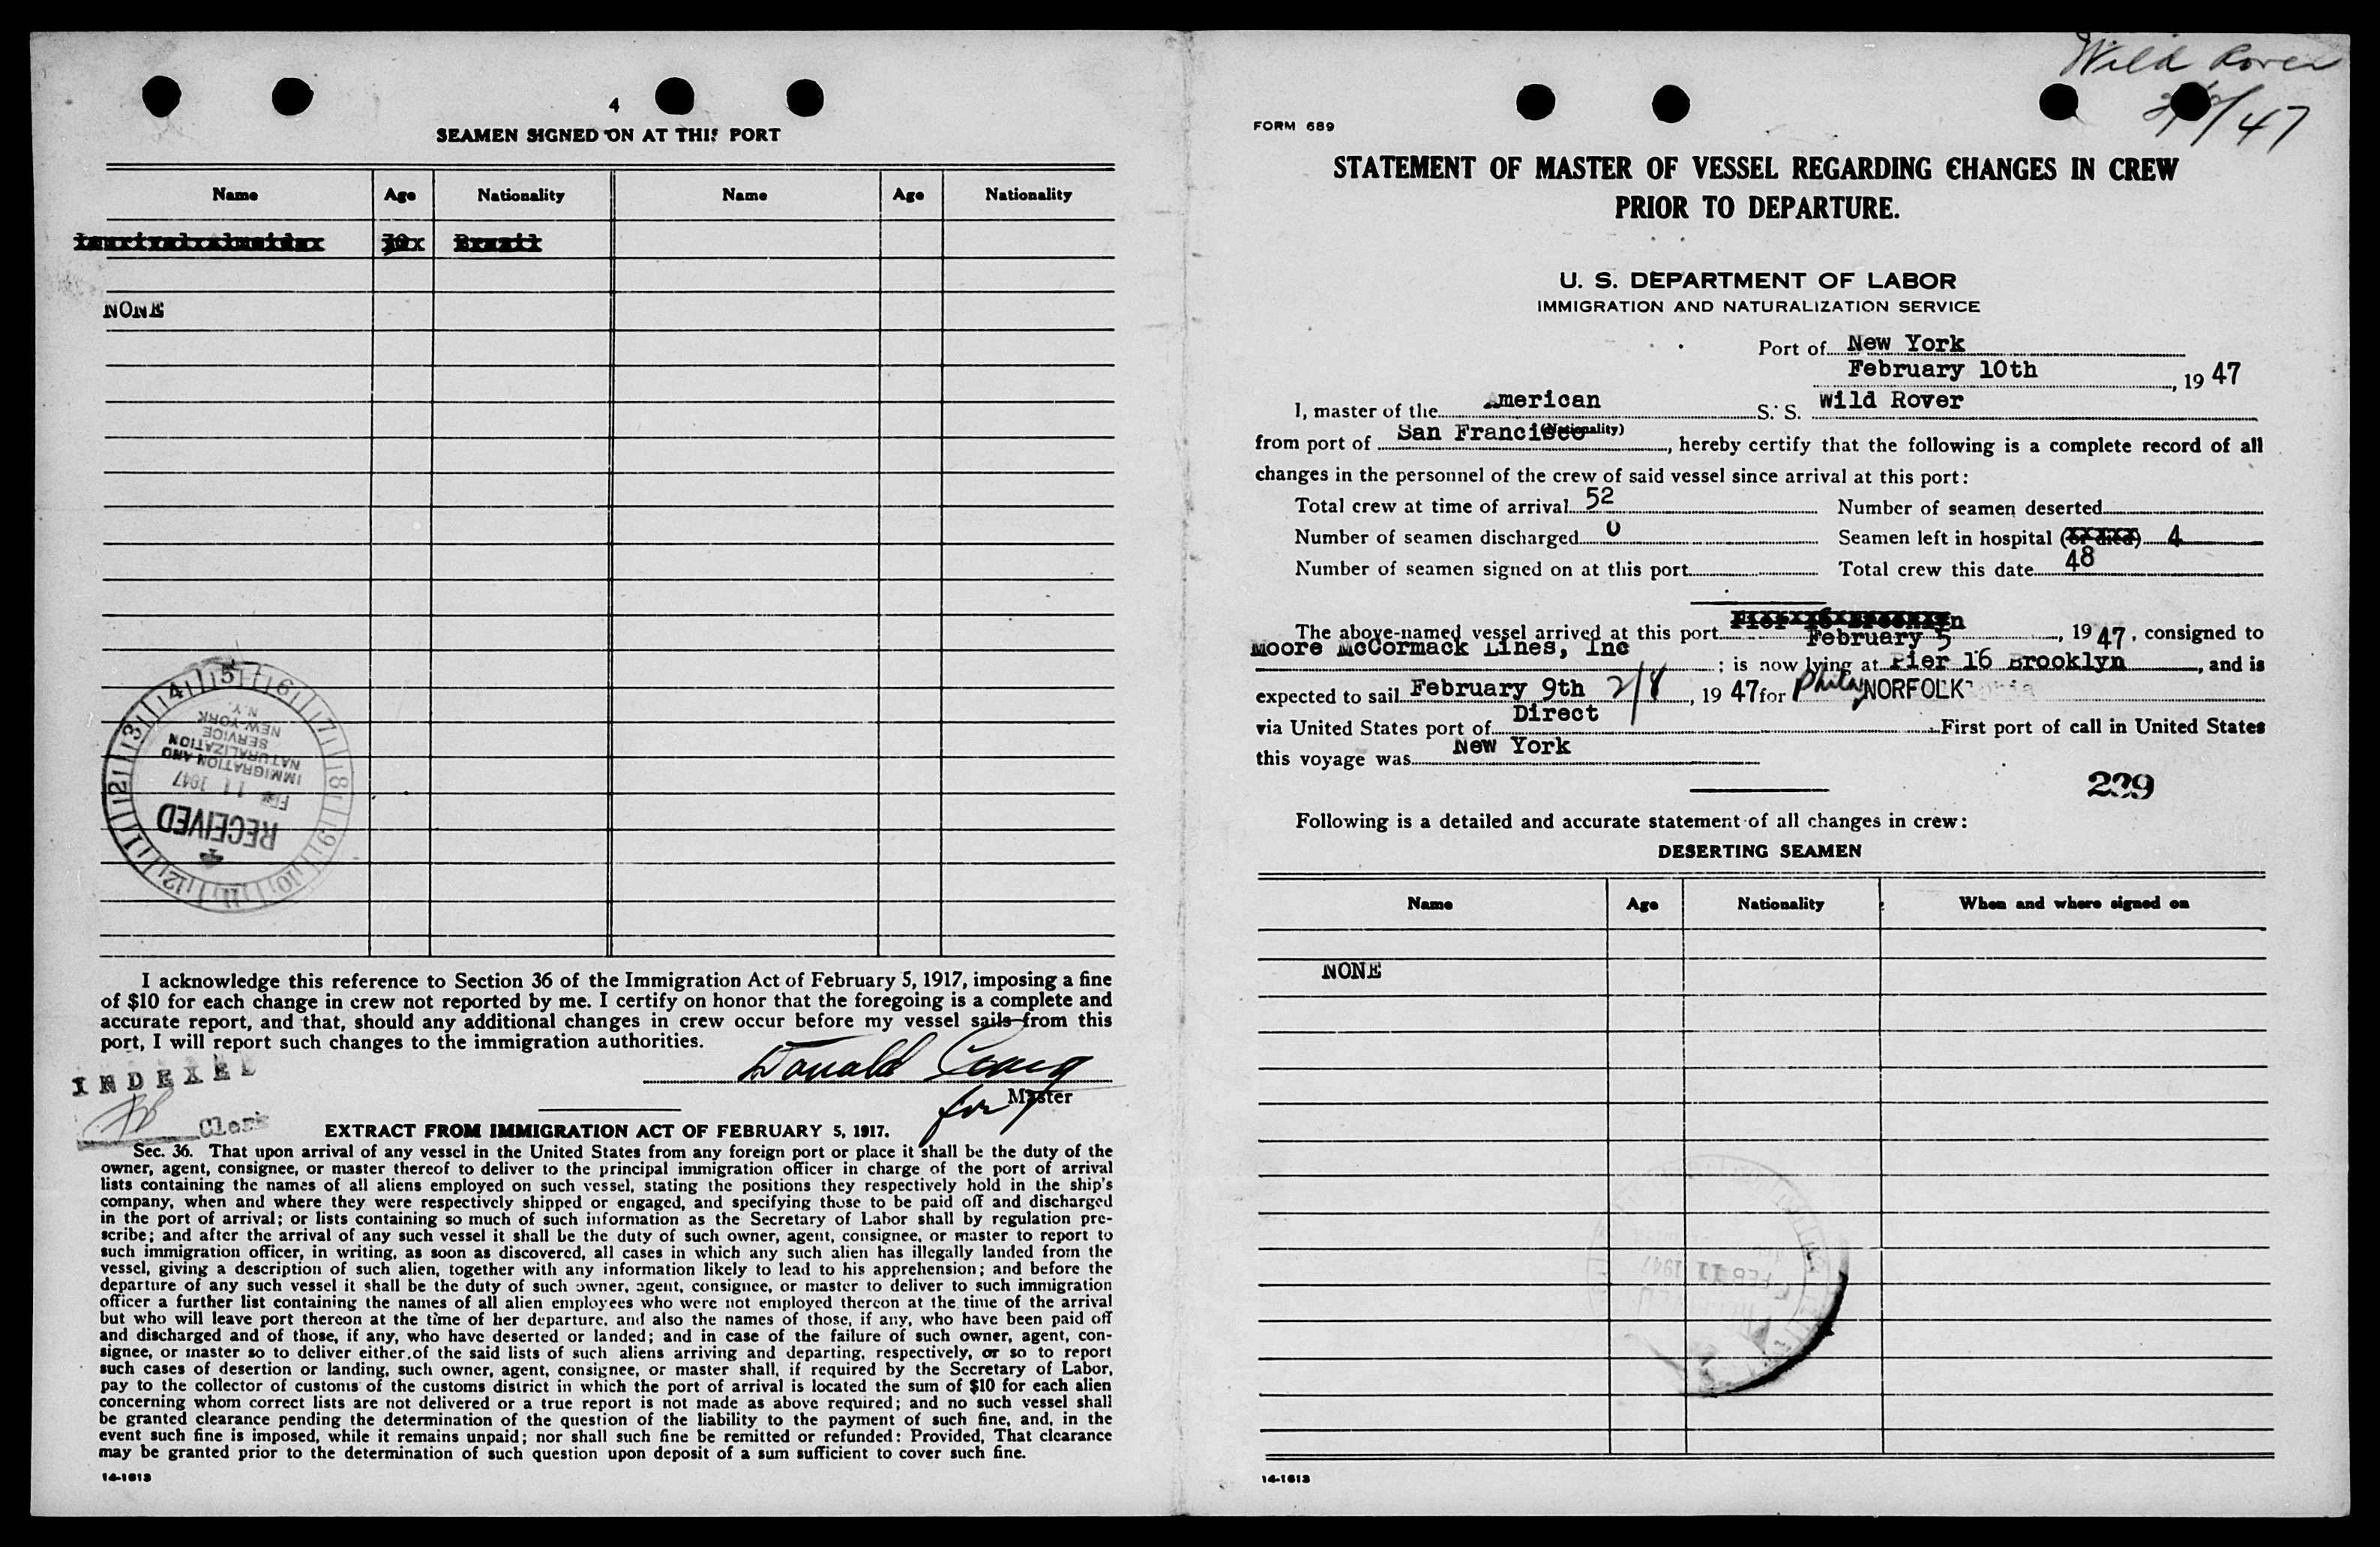 4
SEAMEN SIGNED ON AT THIS PORT
Name Age Nationality Name Age Nationality
Brazil
NONE
5 6 7 8 9 10 11 12 1 2 3 4
RECEIVED
FEB 11 1947
IMMIGRATION AND
NATURALIZATION
SERVICE
NEW YORK
N.Y.
I acknowledge this reference to Section 36 of the Immigration Act of February 5, 1917, imposing a fine
of $10 for each change in crew not reported by me. I certify on honor that the foregoing is a complete and
accurate report, and that, should any additional changes in crew occur before my vessel sails from this
port, I will report such changes to the immigration authorities.
INDEXED
Donald Craig
for Master
Clerk
EXTRACT FROM IMMIGRATION ACT OF FEBRUARY 5, 1917.
Sec. 36. That upon arrival of any vessel in the United States from any foreign port or place it shall be the duty of the
owner, agent, consignee, or master thereof to deliver to the principal immigration officer in charge of the port of arrival
lists containing the names of all aliens employed on such vessel, stating the positions they respectively hold in the ship's
company, when and where they were respectively shipped or engaged, and specifying those to be paid off and discharged
in the port of arrival; or lists containing so much of such information as the Secretary of Labor shall by regulation pre-
scribe; and after the arrival of any such vessel it shall be the duty of such owner, agent, consignee, or master to report to
such immigration officer, in writing, as soon as discovered, all cases in which any such alien has illegally landed from the
vessel, giving a description of such alien, together with any information likely to lead to his apprehension; and before the
departure of any such vessel it shall be the duty of such owner, agent, consignee, or master to deliver to such immigration
officer a further list containing the names of all alien employees who were not employed thereon at the time of the arrival
but who will leave port thereon at the time of her departure, and also the names of those, if any, who have been paid off
and discharged and of those, if any, who have deserted or landed; and in case of the failure of such owner, agent, con-
signee, or master so to deliver either of the said lists of such aliens arriving and departing, respectively, or so to report
such cases of desertion or landing, such owner, agent, consignee, or master shall, if required by the Secretary of Labor,
pay to the collector of customs of the customs district in which the port of arrival is located the sum of $10 for each alien
concerning whom correct lists are not delivered or a true report is not made as above required; and no such vessel shall
be granted clearance pending the determination of the question of the liability to the payment of such fine, and, in the
event such fine is imposed, while it remains unpaid; nor shall such fine be remitted or refunded: Provided, That clearance
may be granted prior to the determination of such question upon deposit of a sum sufficient to cover such fine.
14-1613
Wild Rover
/47
FORM 689
STATEMENT OF MASTER OF VESSEL REGARDING CHANGES IN CREW
PRIOR TO DEPARTURE.
U. S. DEPARTMENT OF LABOR
IMMIGRATION AND NATURALIZATION SERVICE
Port of New York
February 10th, 19 47
I, master of the American S. S. Wild Rover
(Nationality)
from port of San Francisco, hereby certify that the following is a complete record of all
changes in the personnel of the crew of said vessel since arrival at this port:
Total crew at time of arrival 52 Number of seamen deserted
Number of seamen discharged 0 Seamen left in hospital (or died) 4
Number of seamen signed on at this port Total crew this date 48
Pier 16 Brooklyn
The above-named vessel arrived at this port February 5, 19 47, consigned to
Moore McCormack Lines, Inc ; is now lying at Pier 16 Brooklyn, and is
expected to sail February 9th 2/8, 19 47 for Phila NORFOLK
via United States port of Direct First port of call in United States
this voyage was New York
239
Following is a detailed and accurate statement of all changes in crew:
DESERTING SEAMEN
Name Age Nationality When and where signed on
NONE
FEB 11 1947
14-1613